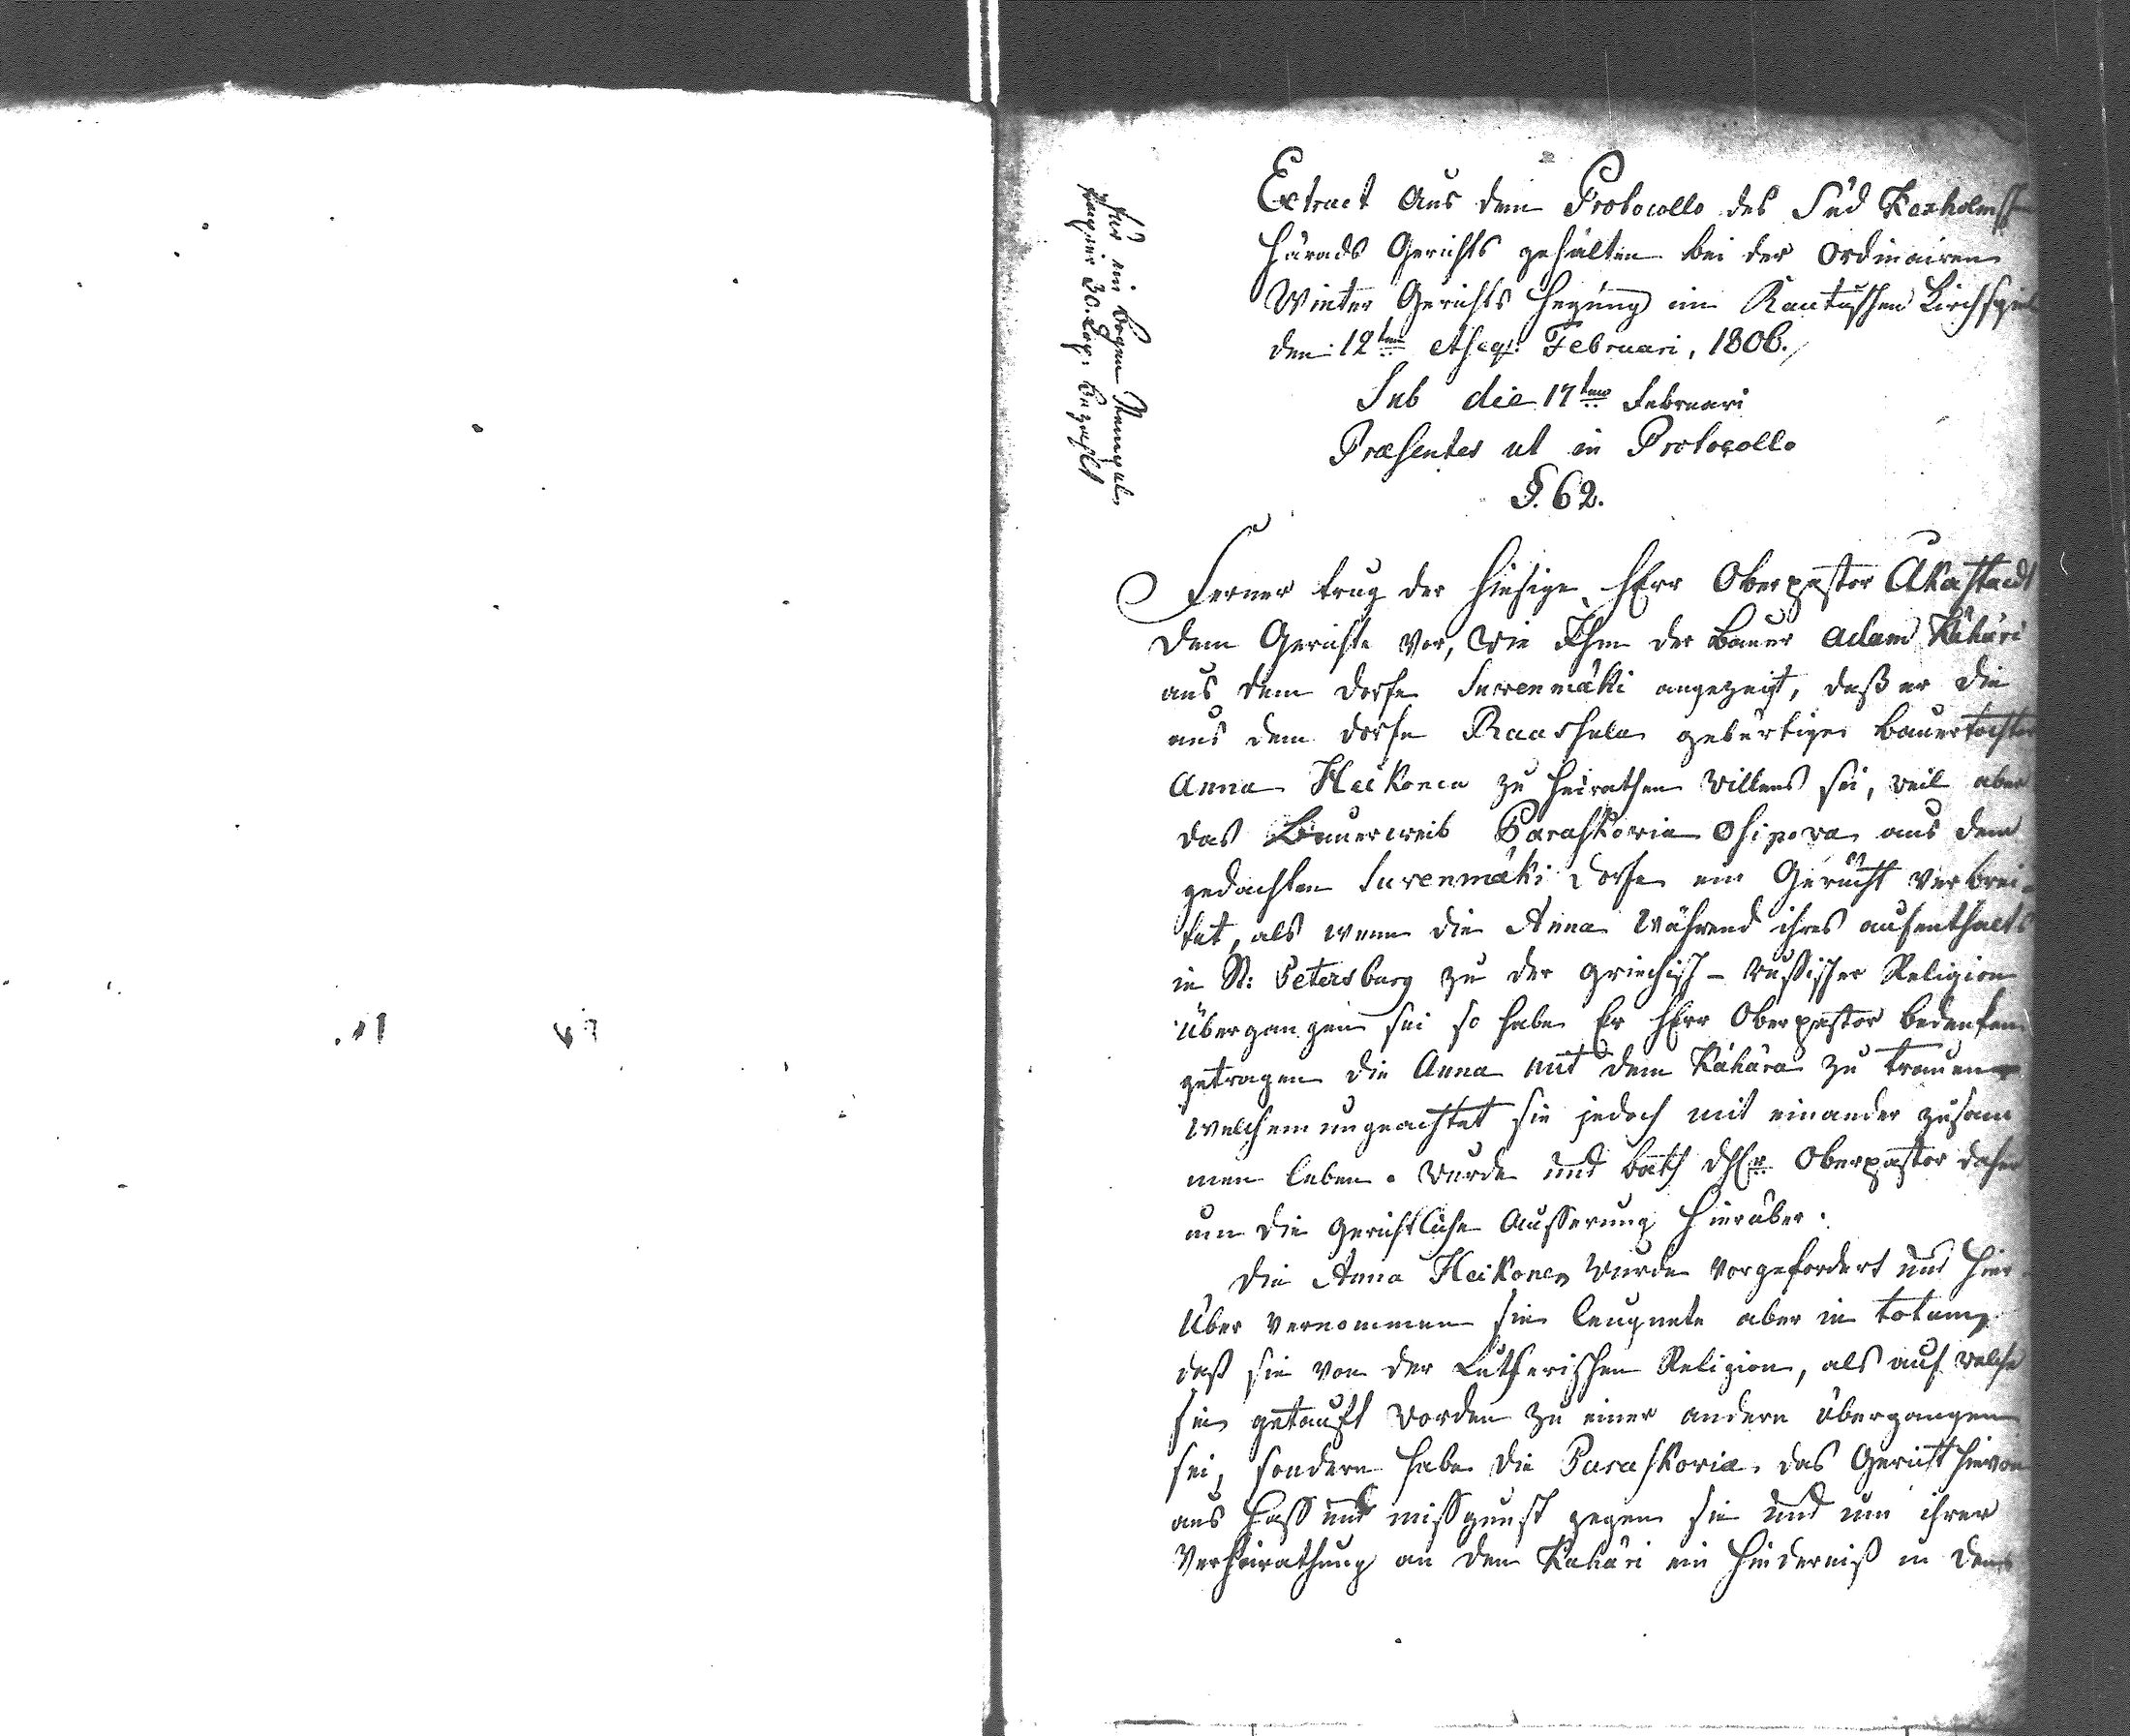 Für ein Bogen Stempel
papier 30. Cop: bezahlt
Extract aus dem Protocollo des Süd Kexholmsch
Härads Gerichts gehalten bei der ordinairen
Winter Gerichts Hegung im Rautuschen Kirchspiel
den 12ten et seq: Februari, 1806.
Sub die 17ten Februari
Præsentes ut in Protocollo
§. 62.
Ferner trug der hiesige HErr Oberpastor Akastaedt
dem Gerichte vor, wie Ihm der Bauer Adam Kähäri
aus dem Dorfe Suvenmäki angezeigt, daß er die
aus dem Dorfe Raashula gebürtige Bauertochter
Anna Heikonen zu heirathen willens sei, weil aber
das Bauerweib Paraskovia Osipova aus dem
gedachten Suvenmäki Dorfe ein Gerücht verbrei-
tet, als wenn die Anna während ihres aufenthalts
in St: Petersburg zu der griechisch-russischer Religion
übergangen sei so habe Er HErr Oberpastor bedenken
getragen die Anna mit dem Kähära zu trauen
welchem ungeachtet sie jedoch mit einander zusam
men leben. wurde und bath dHEr Oberpastor daher
um die gerichtliche Ausserung hierüber.
Die Anna Heikonen wurde vorgefordert und hier
über vernommen sie leugnete aber in totum,
daß sie von der Lutherischen Religion, als auf welche
sie getauft worden zu einer andern übergangen
sei, sondern habe die Paraskovia das Gerücht hievon
aus Hass und missgunst gegen sie und um ihrer
Verheirathung an den Kähäri ein Hinderniß in den